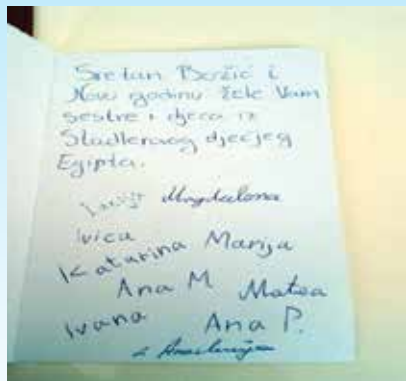 Sretan Božić i
Novu godinu žele Vam
sestre i djeca iz
Stadlerovog dječjeg
Egipta.
Magdalena
Ivica
Katarina Marija
Ana M Matea
Ivana Ana P.